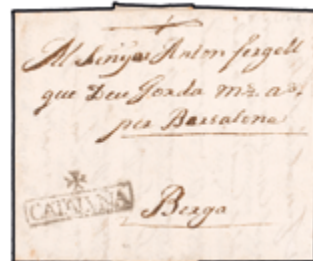 Al Senyor Anton fergell
que Deu Gorda m.s a.s
per Barsalona
CATAÑA
Berga